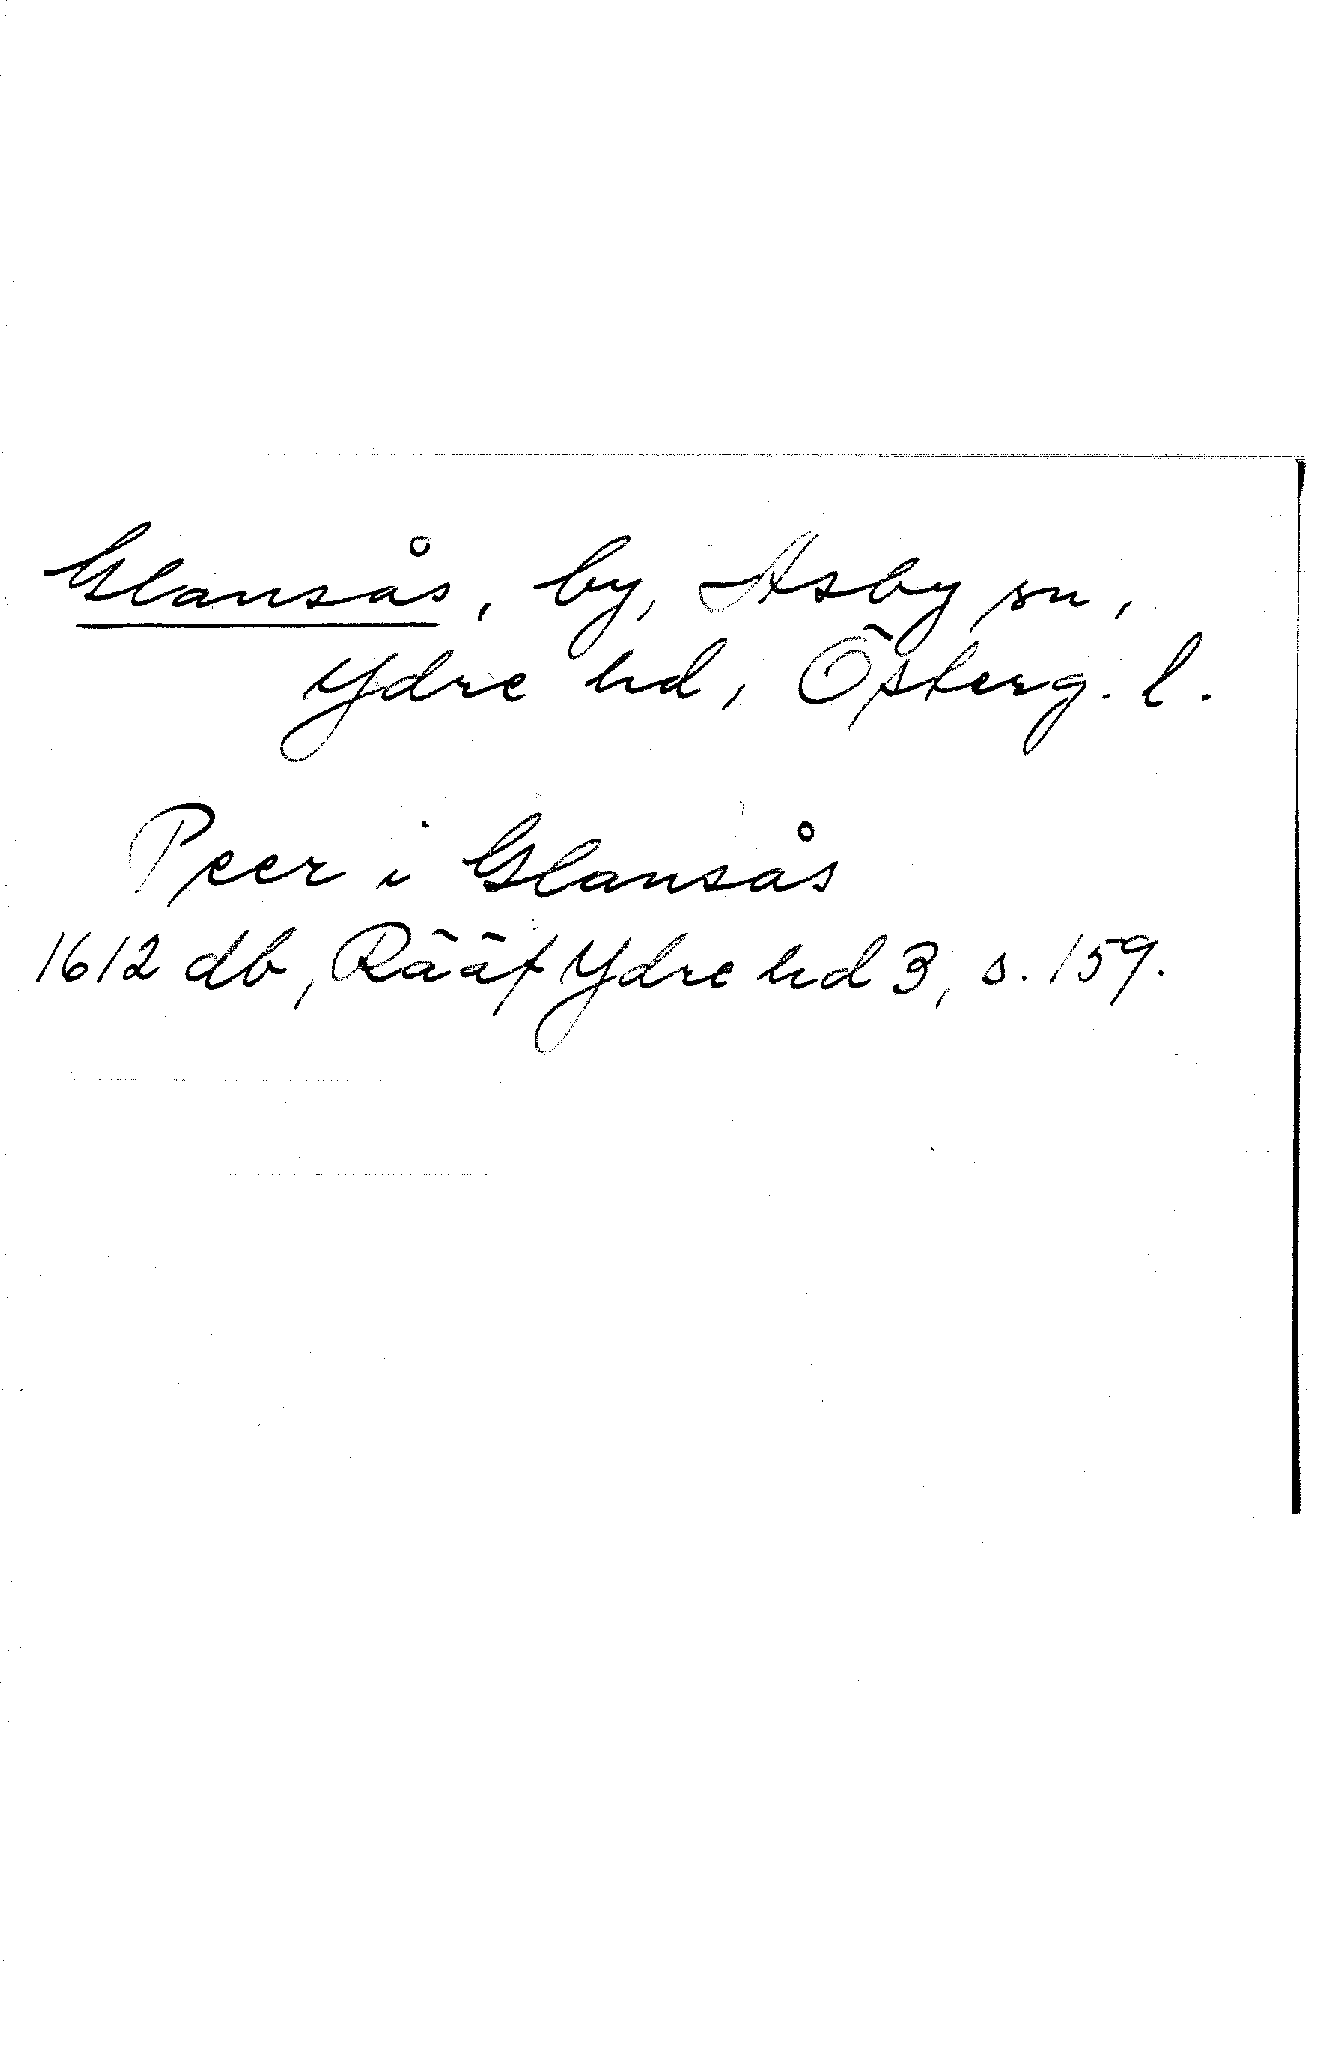 Glansås, by, Asby sn,
Ydre hd, Österg. l.
Peer i Glansås
1612 db, Rääf Ydre hd 3, s. 159.